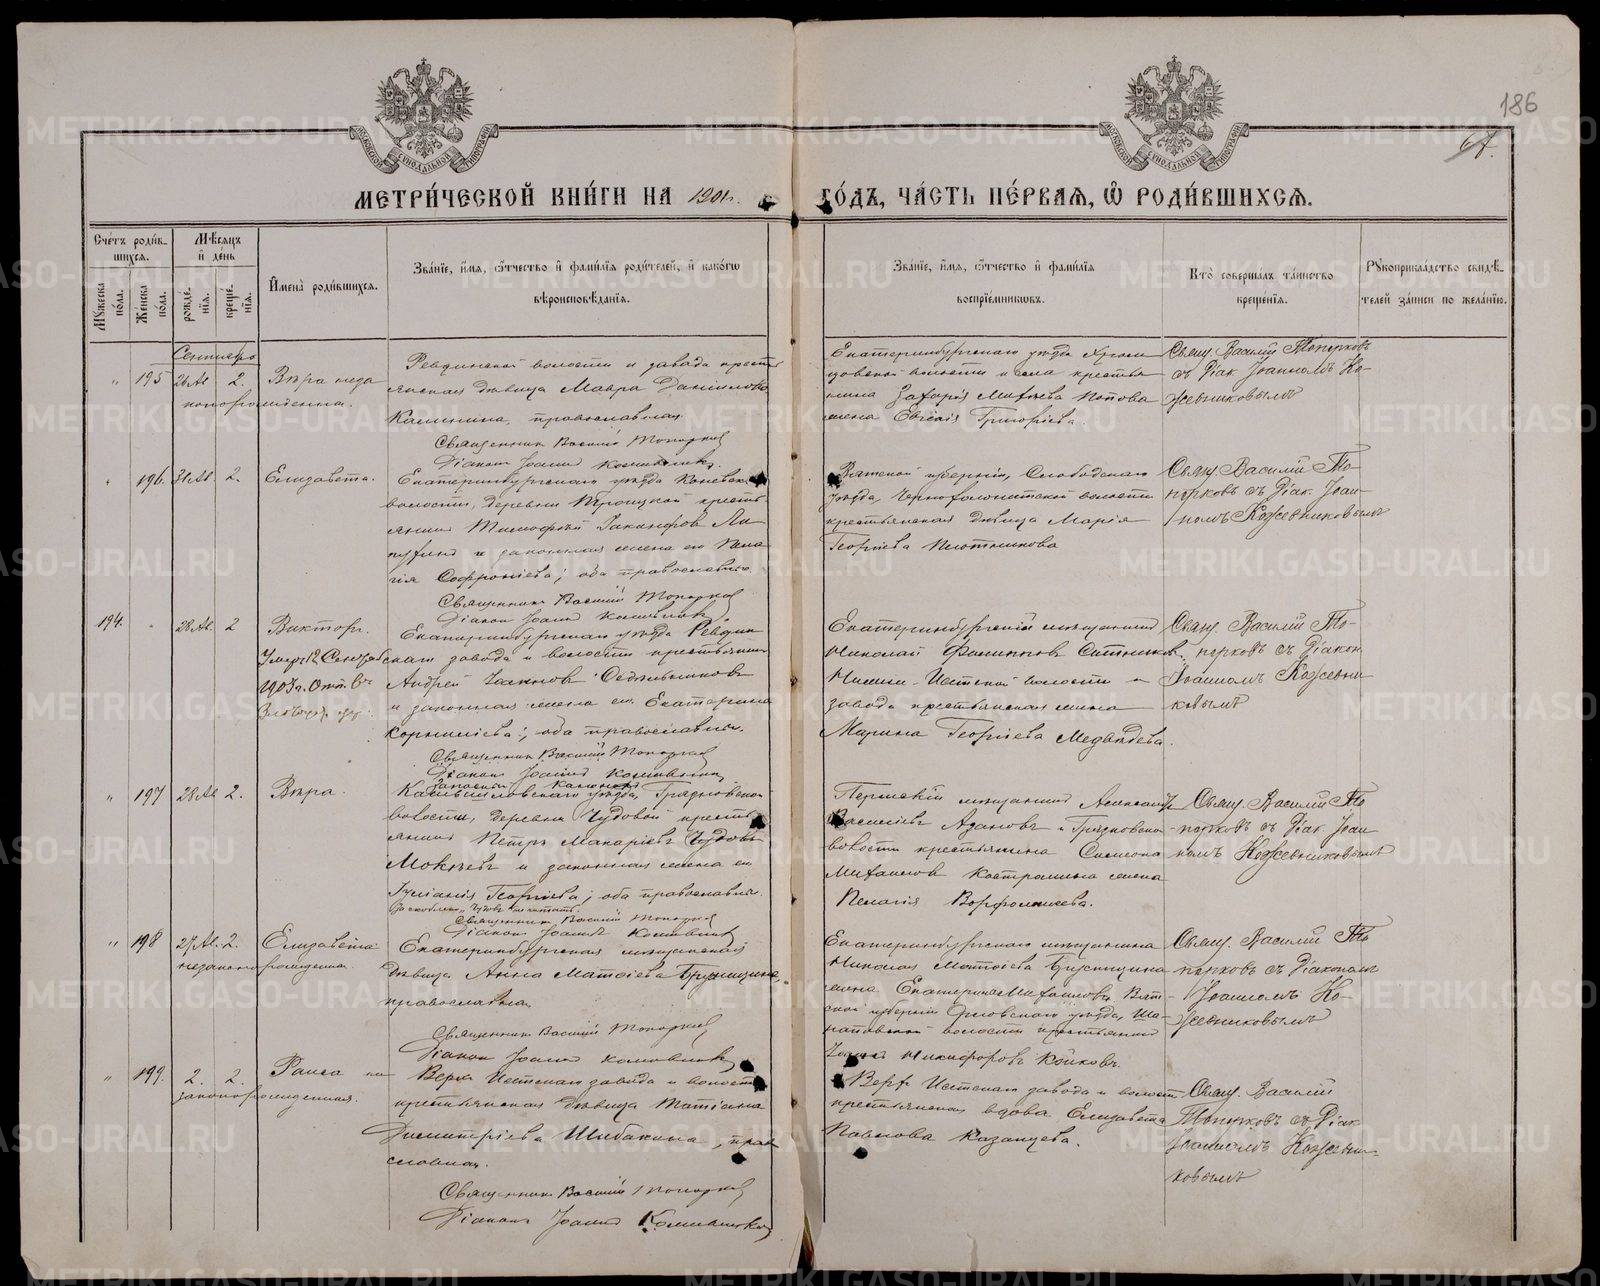 186
67.
МЕТРИ́ЧЕСКОЙ КНИ́ГИ НА 1901 г. ГО́ДЪ, ЧА́СТЬ ПЕ́РВАЯ, Ѡ РОДИ́ВШИХСЯ.
Сче́тъ роди́вшихся.
Мꙋ́жеска по́ла.
Же́нска по́ла.
Мѣ́сяцъ и҆ де́нь
рожде́нїя.
креще́нїя.
И҆мена̀ роди́вшихся.
Зва́нїе, и҆́мя, ѻ҆́тчество и҆ фами́лїя роди́телей, и҆ како́гѡ вѣроисповѣ́данїя.
Зва́нїе, и҆́мя, ѻ҆́тчество и҆ фами́лїя воспрїе́мниковъ.
Кто̀ соверша́лъ та́инство креще́нїя.
Рꙋкоприкла́дство свидѣ́телей за́писи по жела́нїю.
Сентябрь
" 195 26 Ав. 2. Вѣра неза
коннорожденная.
Ревдинской волости и завода кресть
янская дѣвица Мавра Даніилова
Калинина, православная
Священникъ Василій Топорков
Діаконъ Іоаннъ Кожевников
Екатеринбургскаго уѣзда
волости и села кресть
янина Захарія Попова
жена Евгенія Григоріева.
Свящ. Василій Топорковъ
съ Діак. Іоанномъ Ко
жевниковымъ
196. 31 Ав. 2. Елизавета.
Екатеринбургскаго уѣзда
волости, деревни Троицкой кресть
янинъ Тимофей
и законная жена его Пела
гія Софроніева; оба православные
Священникъ Василій Топорков
Діаконъ Іоаннъ Кожевников
Вятской губерніи, Слободскаго
уѣзда, волости
крестьянская дѣвица Марія
Георгіева Плотникова
Свящ. Василій То
порковъ съ Діак. Іоан
номъ Кожевниковымъ
194. 28 Ав. 2 Викторъ.
Умеръ 12 Сентяб
1903 г.
Екатеринбургскаго уѣзда Ревдин
скаго завода и волости крестьянинъ
Андрей Іоанновъ
и законная жена его Екатерина
Корниліева; оба православные.
Священникъ Василій Топорков
Діаконъ Іоаннъ Кожевников
Екатеринбургскій мѣщанинъ
Николай Филипповъ Ситниковъ,
Нижне-Исетской волости и
завода крестьянская жена
Марина Георгіева Медвѣдева.
Свящ. Василій То
порковъ съ Діакон.
Іоанномъ Кожевни
ковымъ
" 197 28 Ав 2. Вѣра.
Камышловскаго уѣзда, Грязновской
волости, деревни Чудовой кресть
янинъ Петръ Макаріевъ Чудовъ
Мокѣевъ и законная жена его
Іуліанія Георгіева; оба православные.
Священникъ Василій Топорков
Діаконъ Іоаннъ Кожевников
Пермскій мѣщанинъ Александр
Васильевъ Адамовъ и Грязновской
волости крестьянина Симеона
Михаилова Костромина жена
Пелагія Варфоломеева.
Свящ. Василій То
порковъ съ Діак. Іоан
номъ Кожевниковымъ
" 198 27 Ав. 2. Елизавета
незаконнорожденная.
Екатеринбургская мѣщанская
дѣвица Анна Матѳіева Брусницына,
православная.
Священникъ Василій Топорков
Діаконъ Іоаннъ Кожевников
Екатеринбургскаго мѣщанина
Николая Матѳіева Брусницына
жена Екатерина Михаилова, Вят
ской губерніи Орловскаго уѣзда,
волости крестьянинъ
Іоаннъ Никифоровъ Койковъ.
Свящ. Василій То
порковъ съ Діакономъ
Іоанномъ Ко
жевниковымъ
" 199. 2. 2. Раиса не
законнорожденная.
Верх Исетскаго завода и волости
крестьянская дѣвица Татіана
Димитріева Шибакина, право
славная.
Священникъ Василій Топорков
Діаконъ Іоаннъ Кожевников
Верх Исетскаго завода и волост
крестьянская вдова Елизавета
Павлова Казанцева.
Свящ. Василій
Топорковъ съ Діак.
Іоанномъ Кожевни
ковымъ
METRIKI.GASO-URAL.RU